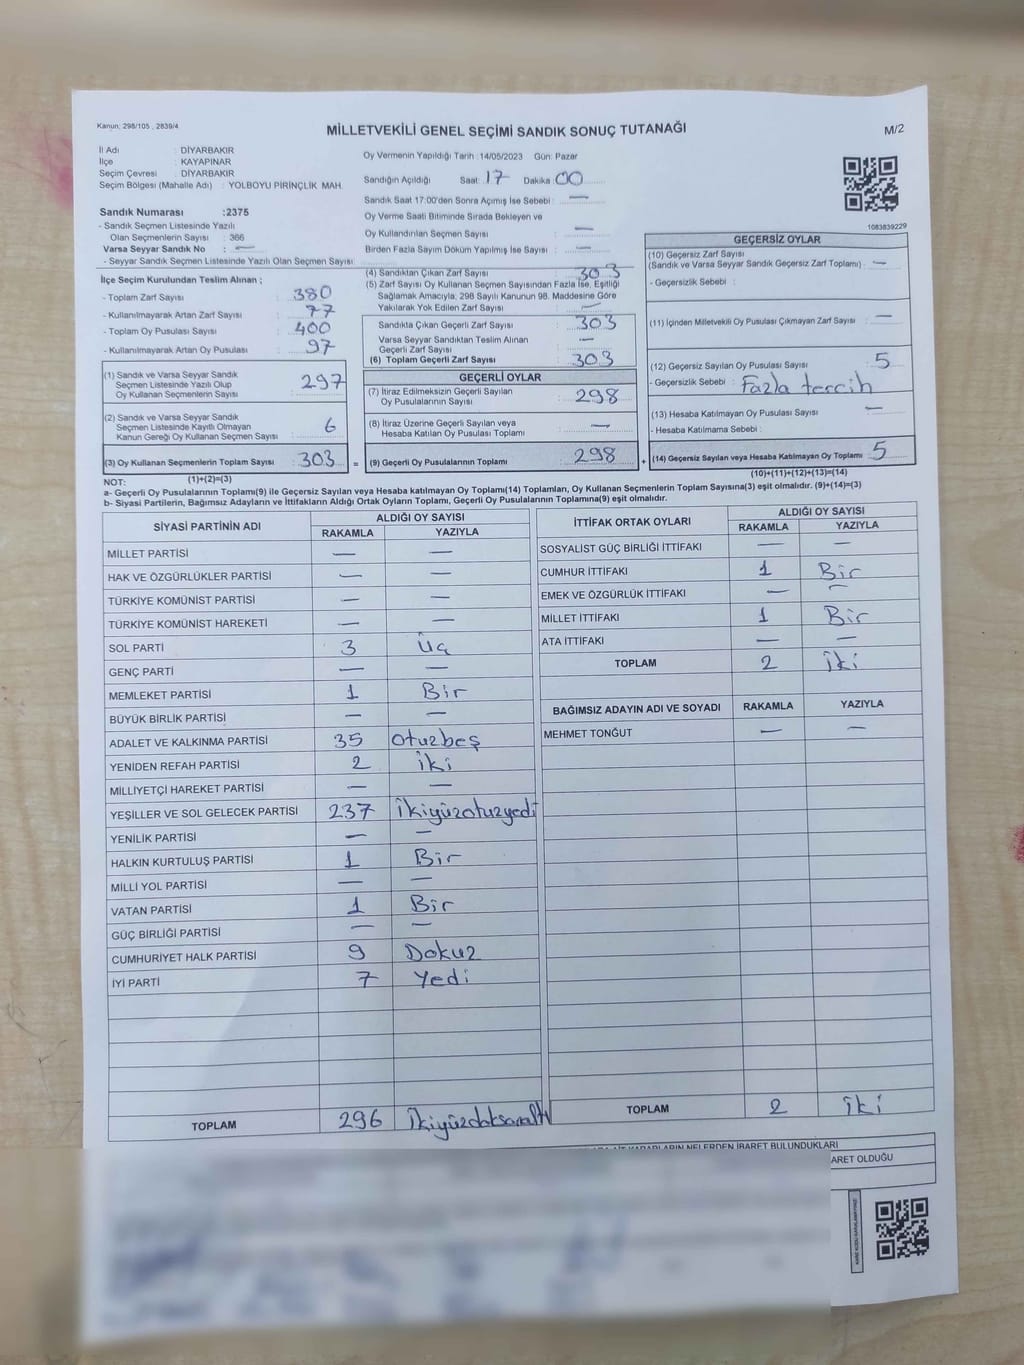 Kanun; 298/105 , 2839/4
MİLLETVEKİLİ GENEL SEÇİMİ SANDIK SONUÇ TUTANAĞI
M/2
İl Adı : DİYARBAKIR
İlçe : KAYAPINAR
Seçim Çevresi : DİYARBAKIR
Seçim Bölgesi (Mahalle Adı) : YOLBOYU PİRİNÇLİK MAH.
Sandık Numarası :2375
- Sandık Seçmen Listesinde Yazılı
Olan Seçmenlerin Sayısı : 366
Varsa Seyyar Sandık No : —
- Seyyar Sandık Seçmen Listesinde Yazılı Olan Seçmen Sayısı
Oy Vermenin Yapıldığı Tarih :14/05/2023 Gün: Pazar
Sandığın Açıldığı Saat: 17 Dakika: 00
Sandık Saat 17:00'den Sonra Açımış İse Sebebi : —
Oy Verme Saati Bitiminde Sırada Bekleyen ve
Oy Kullandırılan Seçmen Sayısı —
Birden Fazla Sayım Döküm Yapılmış İse Sayısı : —
1083839229
İlçe Seçim Kurulundan Teslim Alınan ;
- Toplam Zarf Sayısı 380
- Kullanılmayarak Artan Zarf Sayısı 77
- Toplam Oy Pusulası Sayısı 400
- Kullanılmayarak Artan Oy Pusulası 97
(1) Sandık ve Varsa Seyyar Sandık
Seçmen Listesinde Yazılı Olup
Oy Kullanan Seçmenlerin Sayısı 297
(2) Sandık ve Varsa Seyyar Sandık
Seçmen Listesinde Kayıtlı Olmayan
Kanun Gereği Oy Kullanan Seçmen Sayısı 6
(3) Oy Kullanan Seçmenlerin Toplam Sayısı 303 =
(1)+(2)=(3)
(4) Sandıktan Çıkan Zarf Sayısı 303
(5) Zarf Sayısı Oy Kullanan Seçmen Sayısından Fazla İse, Eşitliği
Sağlamak Amacıyla; 298 Sayılı Kanunun 98. Maddesine Göre
Yakılarak Yok Edilen Zarf Sayısı —
Sandıkta Çıkan Geçerli Zarf Sayısı 303
Varsa Seyyar Sandıktan Teslim Alınan
Geçerli Zarf Sayısı —
(6) Toplam Geçerli Zarf Sayısı 303
GEÇERLİ OYLAR
(7) İtiraz Edilmeksizin Geçerli Sayılan
Oy Pusulalarının Sayısı 298
(8) İtiraz Üzerine Geçerli Sayılan veya
Hesaba Katılan Oy Pusulası Toplamı —
(9) Geçerli Oy Pusulalarının Toplamı 298 +
GEÇERSİZ OYLAR
(10) Geçersiz Zarf Sayısı
(Sandık ve Varsa Seyyar Sandık Geçersiz Zarf Toplamı) : —
- Geçersizlik Sebebi :
(11) İçinden Milletvekili Oy Pusulası Çıkmayan Zarf Sayısı : —
(12) Geçersiz Sayılan Oy Pusulası Sayısı : 5
- Geçersizlik Sebebi : Fazla tercih
(13) Hesaba Katılmayan Oy Pusulası Sayısı : —
- Hesaba Katılmama Sebebi :
(14) Geçersiz Sayılan veya Hesaba Katılmayan Oy Toplamı : 5
(10)+(11)+(12)+(13)=(14)
NOT:
a- Geçerli Oy Pusulalarının Toplamı(9) ile Geçersiz Sayılan veya Hesaba katılmayan Oy Toplamı(14) Toplamları, Oy Kullanan Seçmenlerin Toplam Sayısına(3) eşit olmalıdır. (9)+(14)=(3)
b- Siyasi Partilerin, Bağımsız Adayların ve İttifakların Aldığı Ortak Oyların Toplamı, Geçerli Oy Pusulalarının Toplamına(9) eşit olmalıdır.
SİYASİ PARTİNİN ADI ALDIĞI OY SAYISI
RAKAMLA YAZIYLA
MİLLET PARTİSİ — —
HAK VE ÖZGÜRLÜKLER PARTİSİ — —
TÜRKİYE KOMÜNİST PARTİSİ — —
TÜRKİYE KOMÜNİST HAREKETİ — —
SOL PARTİ 3 Üç
GENÇ PARTİ — —
MEMLEKET PARTİSİ 1 Bir
BÜYÜK BİRLİK PARTİSİ — —
ADALET VE KALKINMA PARTİSİ 35 otuzbeş
YENİDEN REFAH PARTİSİ 2 İki
MİLLİYETÇİ HAREKET PARTİSİ — —
YEŞİLLER VE SOL GELECEK PARTİSİ 237 İkiyüzotuzyedi
YENİLİK PARTİSİ — —
HALKIN KURTULUŞ PARTİSİ 1 Bir
MİLLİ YOL PARTİSİ — —
VATAN PARTİSİ 1 Bir
GÜÇ BİRLİĞİ PARTİSİ — —
CUMHURİYET HALK PARTİSİ 9 Dokuz
İYİ PARTİ 7 Yedi
TOPLAM 296 İkiyüzdoksanaltı
İTTİFAK ORTAK OYLARI ALDIĞI OY SAYISI
RAKAMLA YAZIYLA
SOSYALİST GÜÇ BİRLİĞİ İTTİFAKI — —
CUMHUR İTTİFAKI 1 Bir
EMEK VE ÖZGÜRLÜK İTTİFAKI — —
MİLLET İTTİFAKI 1 Bir
ATA İTTİFAKI — —
TOPLAM 2 İki
BAĞIMSIZ ADAYIN ADI VE SOYADI RAKAMLA YAZIYLA
MEHMET TONĞUT — —
TOPLAM 2 İki
NELERDEN İBARET BULUNDUKLARI
ARET OLDUĞU